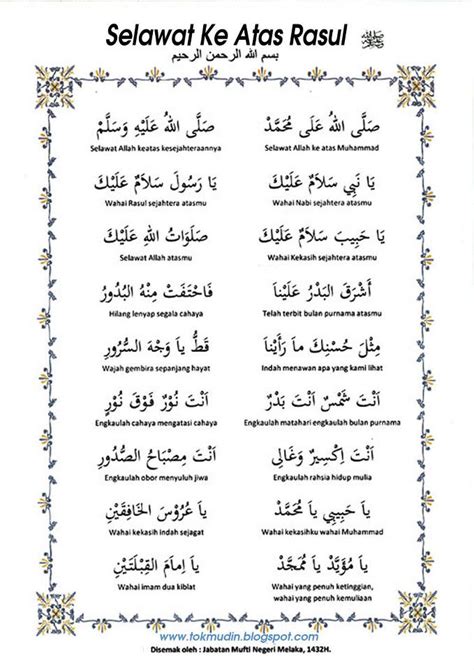 Selawat Ke Atas Rasul ﷺ
بسم الله الرحمن الرحيم
صَلَّى اللهُ عَلَى مُحَمَّدْ صَلَّى اللهُ عَلَيْهِ وَسَلَّمْ
Selawat Allah ke atas Muhammad Selawat Allah keatas kesejahteraannya
يَا نَبِي سَلاَمٌ عَلَيْكَ يَا رَسُولَ سَلاَمٌ عَلَيْكَ
Wahai Nabi sejahtera atasmu Wahai Rasul sejahtera atasmu
يَا حَبِيبَ سَلاَمٌ عَلَيْكَ صَلَوَاتُ اللهِ عَلَيْكَ
Wahai Kekasih sejahtera atasmu Selawat Allah atasmu
أَشْرَقَ الْبَدْرُ عَلَيْناَ فَاخْتَفَتْ مِنْهُ الْبُدُورُ
Telah terbit bulan purnama atasmu Hilang lenyap segala cahaya
مِثْلَ حُسْنِكَ ماَ رَأَيْناَ قَطُّ ياَ وَجْهَ السُّرُورِ
Indah menawan apa yang kami lihat Wajah gembira sepanjang hayat
اَنْتَ شَمْسٌ اَنْتَ بَدْرٌ اَنْتَ نُورٌ فَوْقَ نُوْرٍ
Engkaulah matahari engkaulah bulan purnama Engkaulah cahaya mengatasi cahaya
اَنْتَ اِكْسِيرٌ وَغَالِى اَنْتَ مِصْبَاحُ الصُّدُورِ
Engkaulah rahsia hidup mulia Engkaulah obor menyuluh jiwa
ياَ حَبِيبِي ياَ مُحَمَّدْ ياَ عَرُوْسَ الخَافِقَيْنِ
Wahai kekasihku wahai Muhammad Wahai kekasih indah sejagat
ياَ مُؤَيَّدْ ياَ مُمَجَّدْ ياَ اِمامَ القِبْلَتَيْنِ
Wahai yang penuh ketinggian, Wahai imam dua kiblat
wahai yang penuh kemuliaan
www.tokmudin.blogspot.com
Disemak oleh : Jabatan Mufti Negeri Melaka, 1432H.